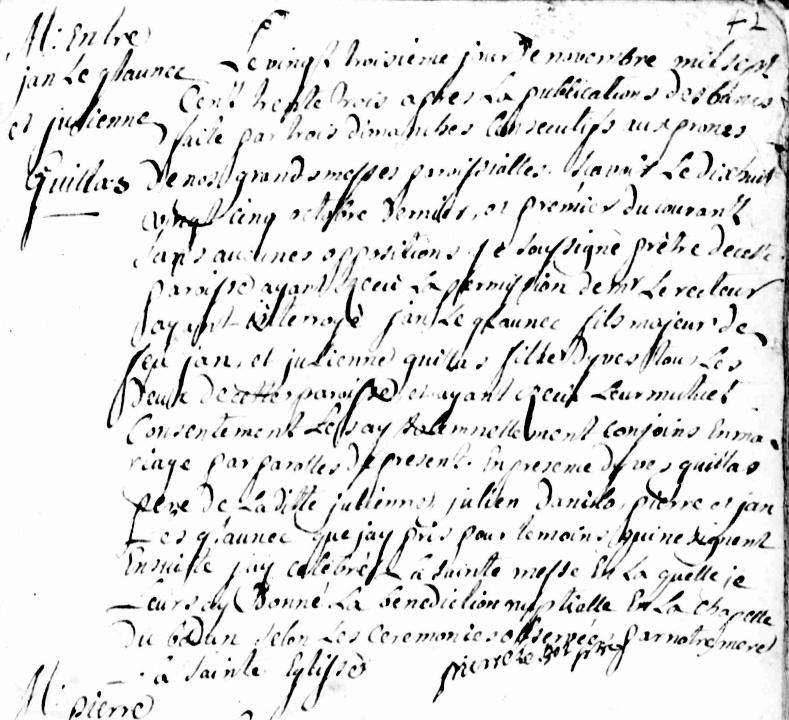 42
M: Entre
jan Le glaunec
et julienne
Guillas
Le vingt troisieme jour de novembre mil sept
Cent trente trois apres La publications des banes
faite par trois dimanches Consecutifs aux prones
de nos grandsmesses paroissialles. Scavoir Le dix huit
vingt cinq octobre dernier, et premier du courant
Sans aucunes oppositions, je soussigné prêtre de cette
paroisse ayant receu La permission de mr Le recteur
ayant interroyé jan Le glaunec fils majeur de
feu jan, et julienne guillas fille dyves tous Les
deux de cette paroisse, et ayant receu Leur mutuel
Consentement Les ay solemnellement conjoins En ma-
riage par parolles de present. En presence dyves guillas
pere de Laditte julienne, julien danilo, pierre et jan
Les glaunec que jay pris pour temoins, qui ne signent
Ensuitte jay celebré La sainte messe En La quelle je
Leurs ay donné La benediction nuptielle En La chapelle
du selon Les Ceremonies observées par notre mere
La Sainte Eglisse
pierre Le prêtre
M: pierre